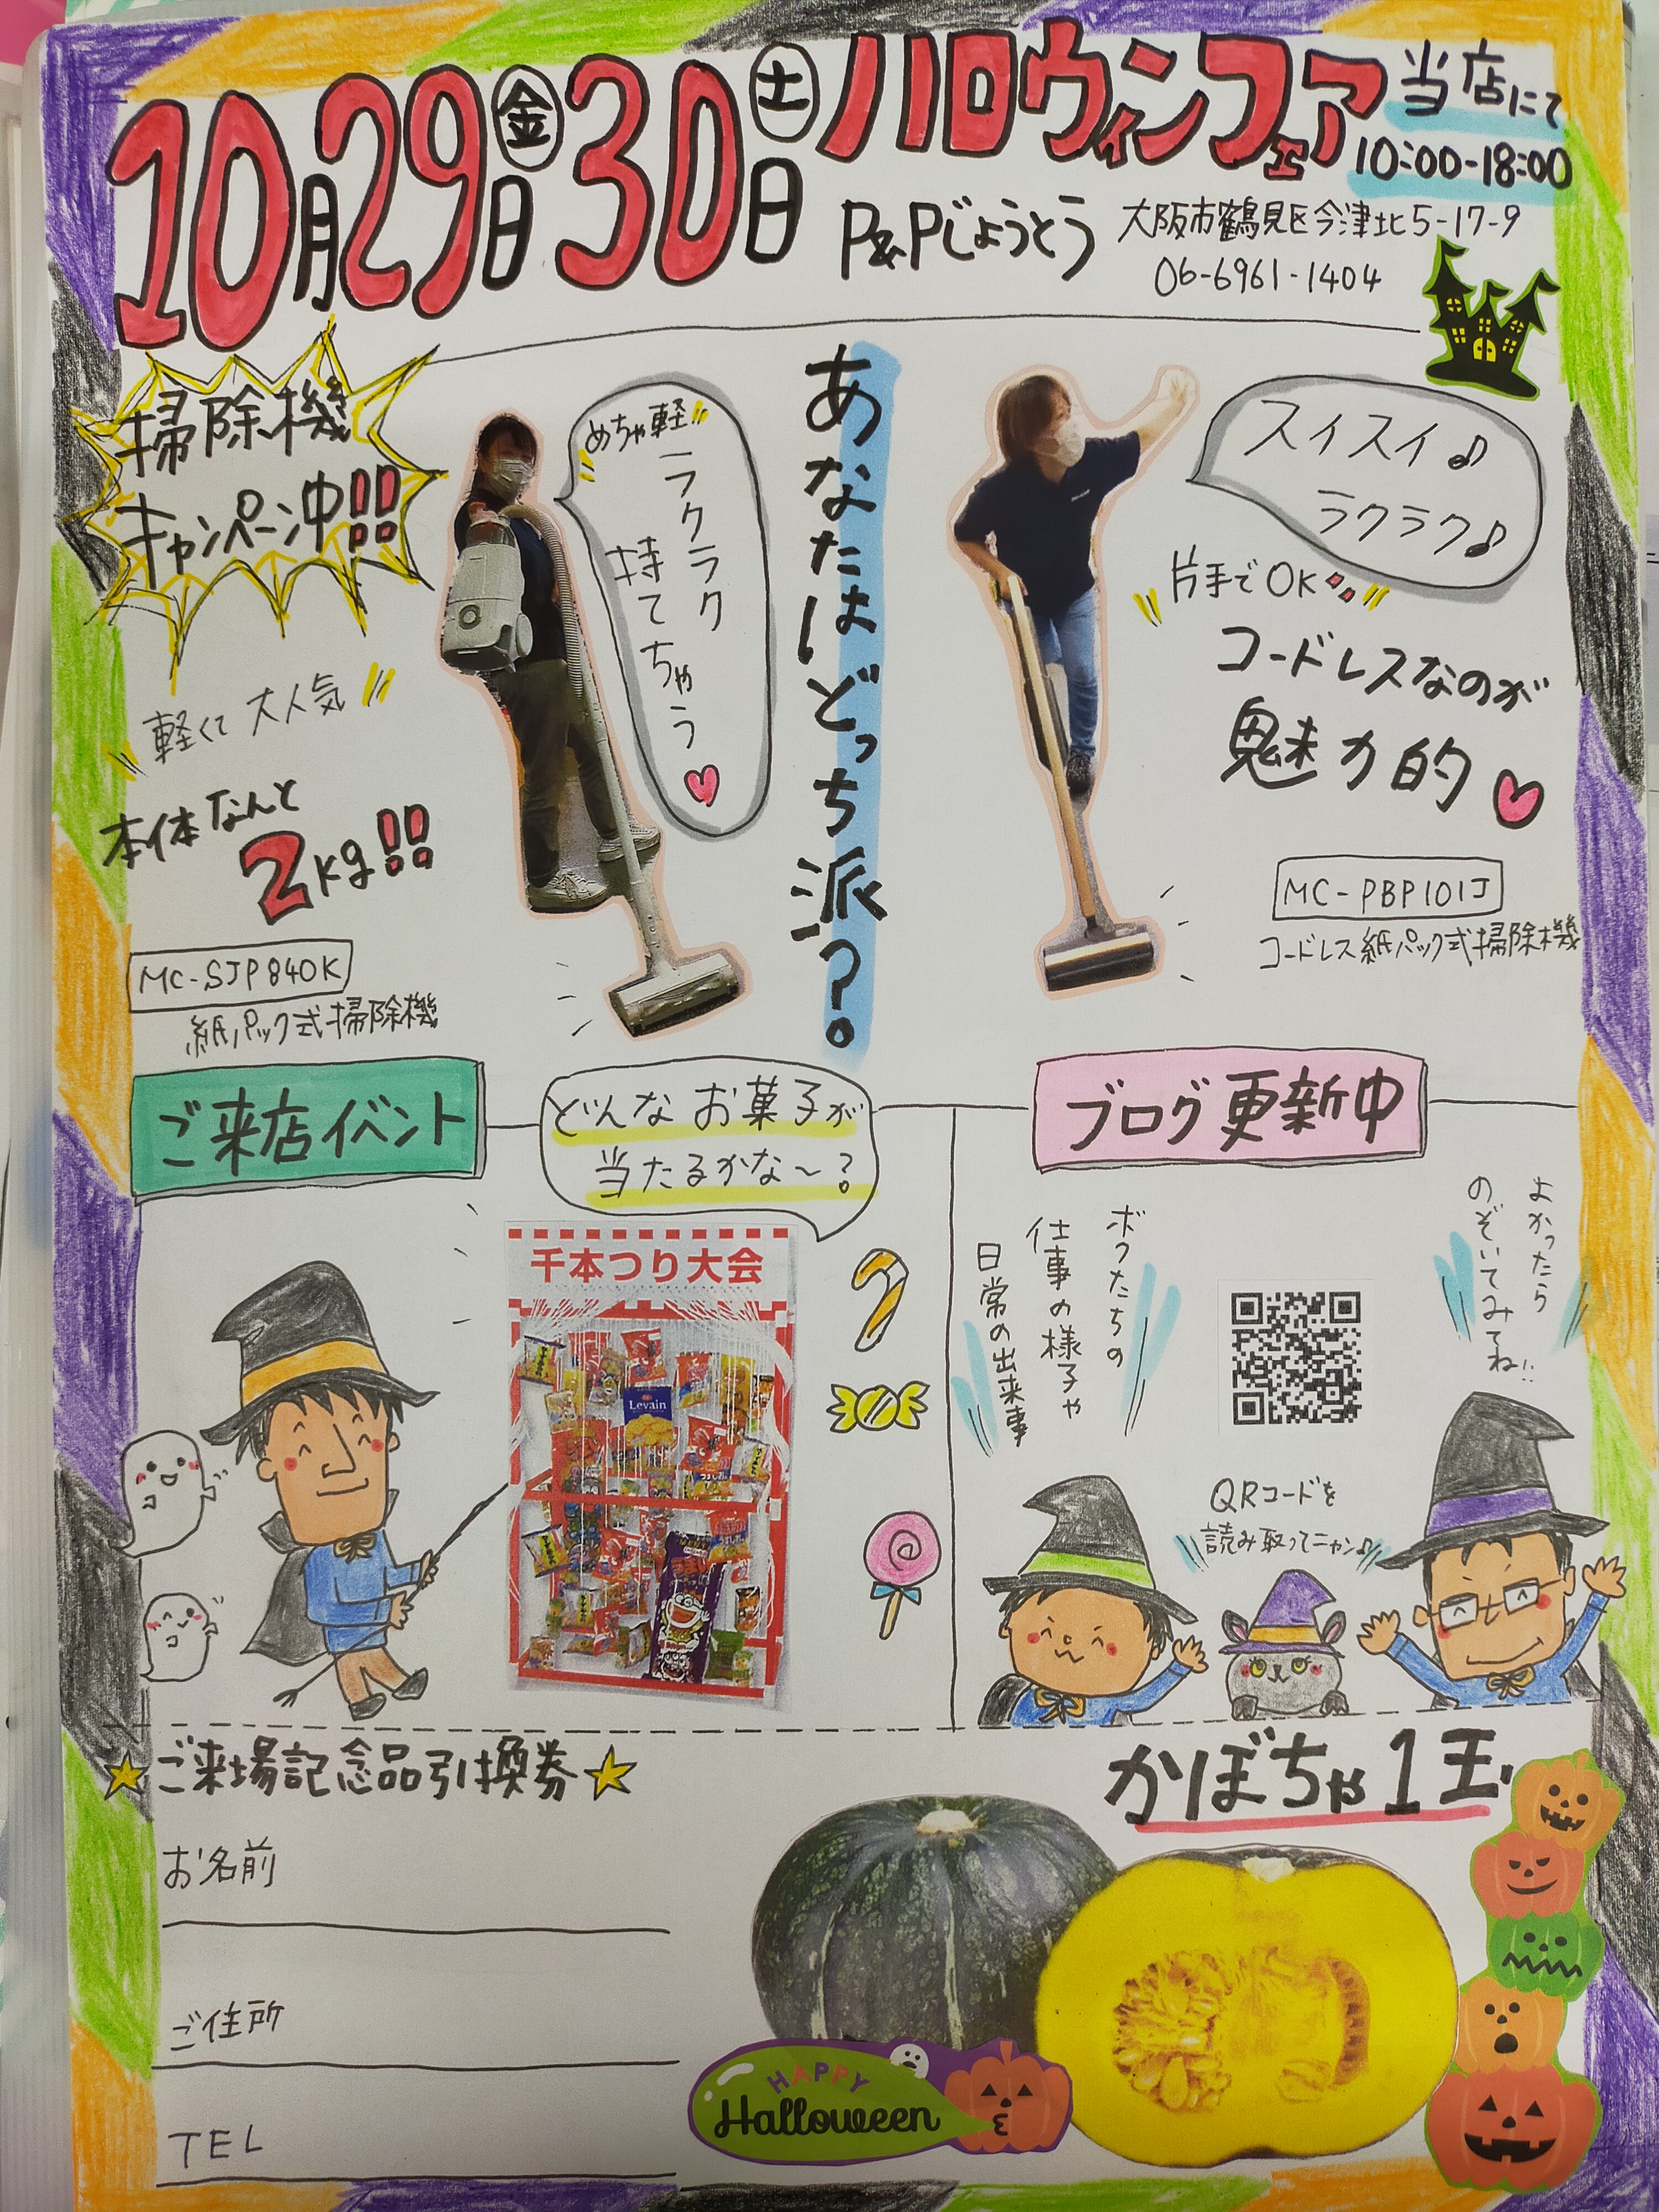 10月29日㊎30日㊏ハロウィンフェア
当店にて
10:00-18:00
P&Pじょうとう
大阪市鶴見区今津北5-17-9
06-6961-1404
掃除機
キャンペーン中!!
軽くて大人気
本体なんと
2kg!!
MC-SJP840K
紙パック式掃除機
めちゃ軽!!
ラクラク
持てちゃう
あなたはどっち派?
スイスイ♪
ラクラク♪
片手でOK
コードレスなのが
魅力的
MC-PBP101J
コードレス紙パック式掃除機
ご来店イベント
どんなお菓子が
当たるかな～?
千本つり大会
Levain
ブログ更新中
よかったら
のぞいてみてね!!
ボクたちの
仕事の様子や
日常の出来事
QRコードを
読み取ってニャン♪
★ご来場記念品引換券★
かぼちゃ1玉
お名前
ご住所
TEL
HAPPY
Halloween